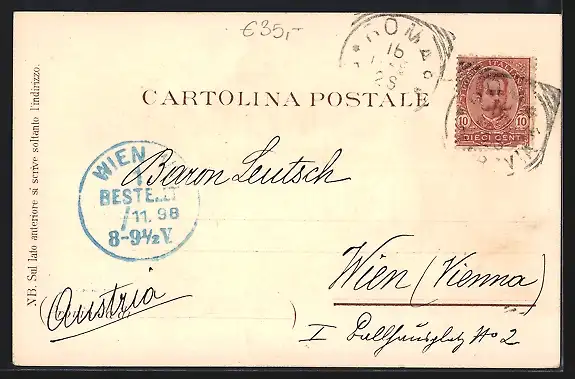 €35,-
ROMA
16
98
CARTOLINA POSTALE
POSTE ITALIANE
10 10
DIECI CENT.
NB. Sul lato anteriore si scrive soltanto l'indirizzo.
WIEN
1
BESTELLT
11.98
8-9½V.
Baron Leutsch
Wien (Vienna)
Austria
I Ballhausplatz No 2